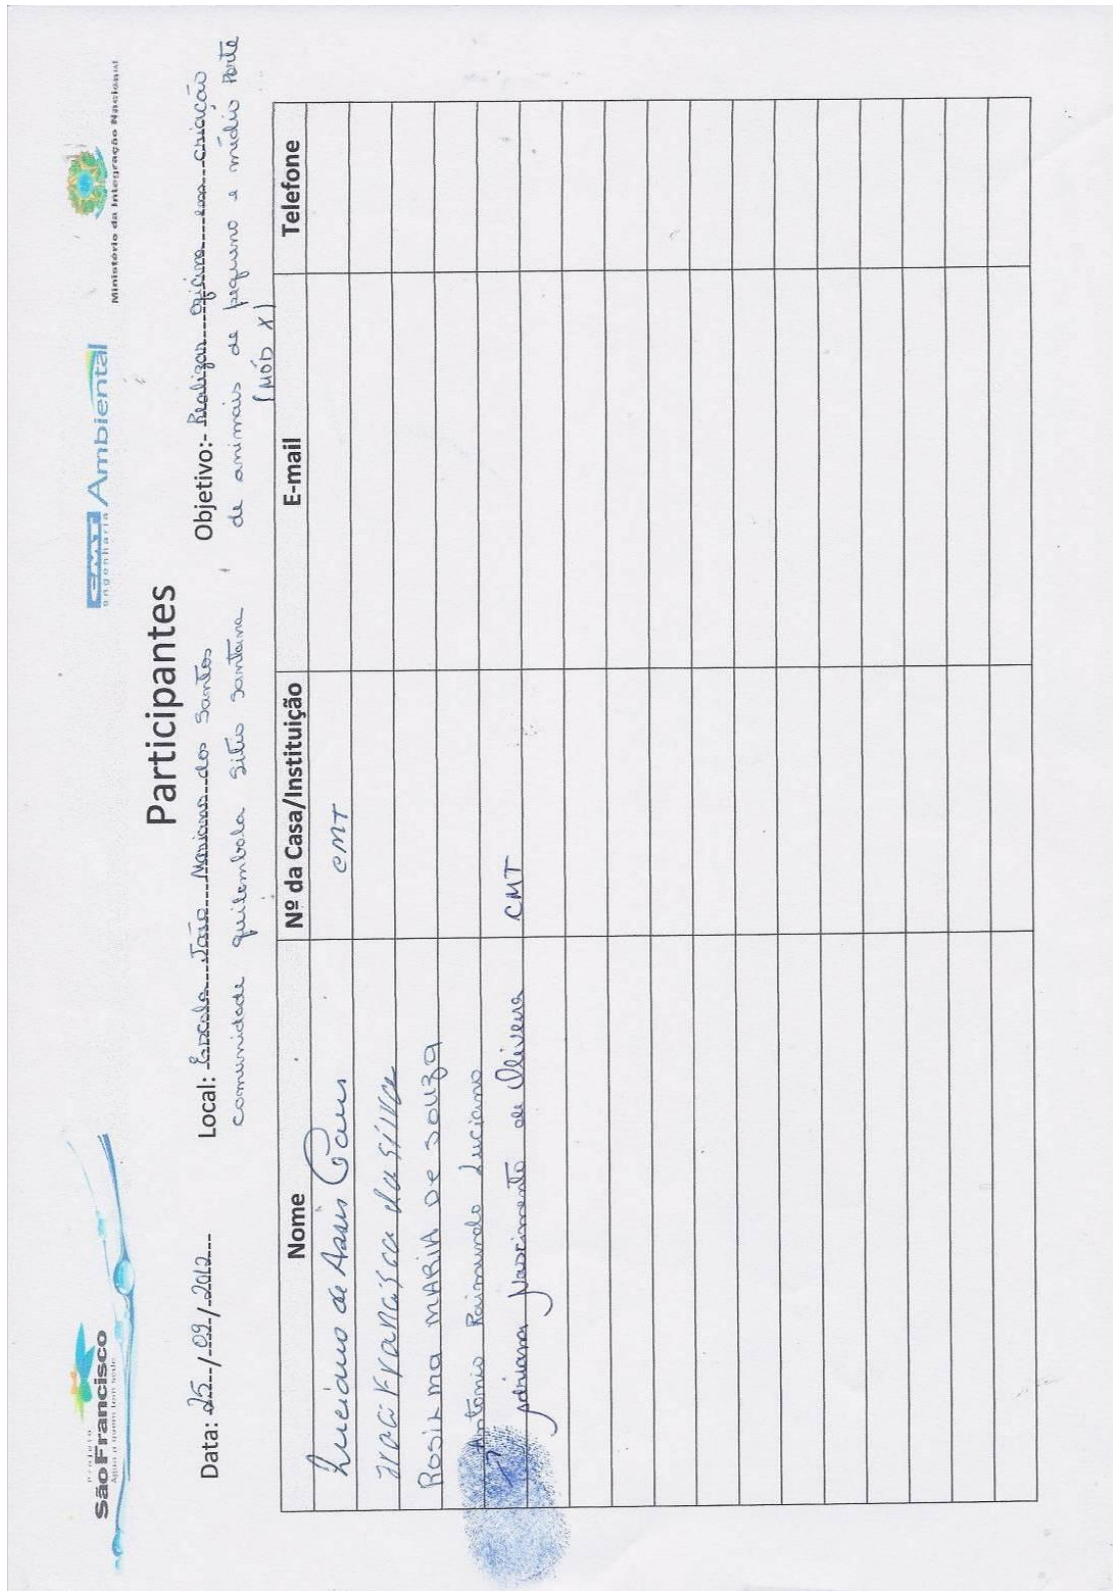 Projeto
São Francisco
Água a quem tem sede
CMT Ambiental
engenharia
Ministério da Integração Nacional
Participantes
Data: 25/09/2012 Local: Escola João Mariano dos Santos Objetivo:- Realizar oficina em criação
comunidade quilombola sítio santana de animais de pequeno e médio porte
(MÓD X)
Nome Nº da Casa/Instituição E-mail Telefone
Luciano de Assis CMT
Francisca da silva
Rosilma MARIA DE SOUZA
Antônio Raimundo Luciano
Adriana Nascimento de Oliveira CMT